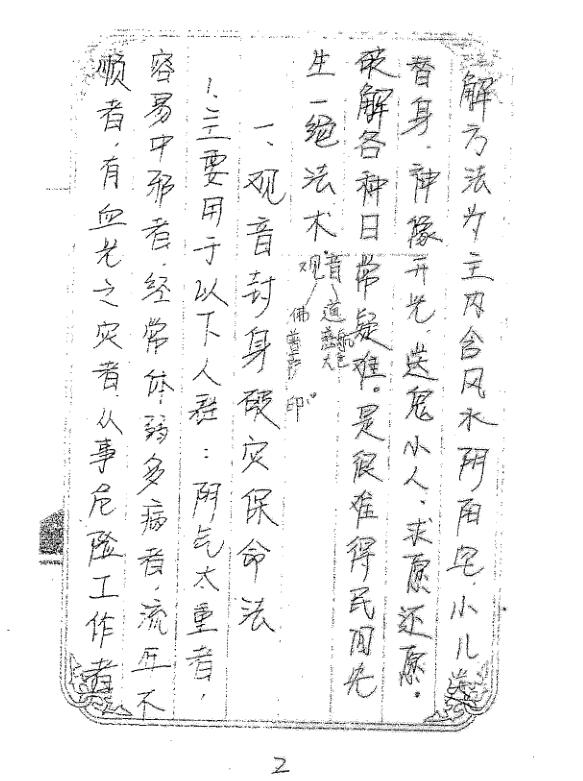 解方法为主内含风水阴阳宅.小儿
替身.神像开光.送鬼小人.求愿还愿.
破解各种日常疑难。是很难得民间先
生一绝法术
观音
道 慈航
佛
印
一、观音封身破灾保命法
1.主要用于以下人群：阴气太重者,
容易中邪者.经常体弱多病者.流年不
顺者.有血光之灾者.从事危险工作者
2